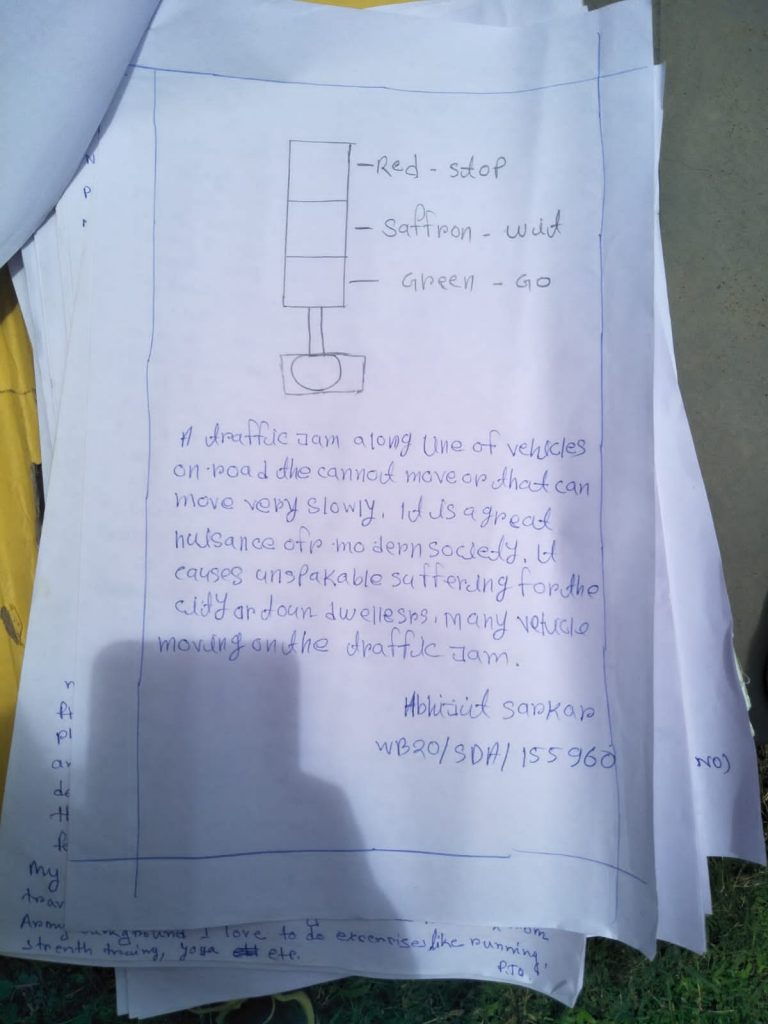 Red - stop
saffron - wait
Green - Go
A traffic Jam a long line of vehicles
on road the cannot move or that can
move very slowly. It is a great
nuisance ofr modern society. It
causes unspakable suffering for the
city or toun dwellesrs. many vehicle
moving on the traffic Jam.
Abhijit Sarkar
WB20/SDA/155960
NO)
My
Army background I love to do excercises like running
strenth traing, yoga etc.
P.T.O